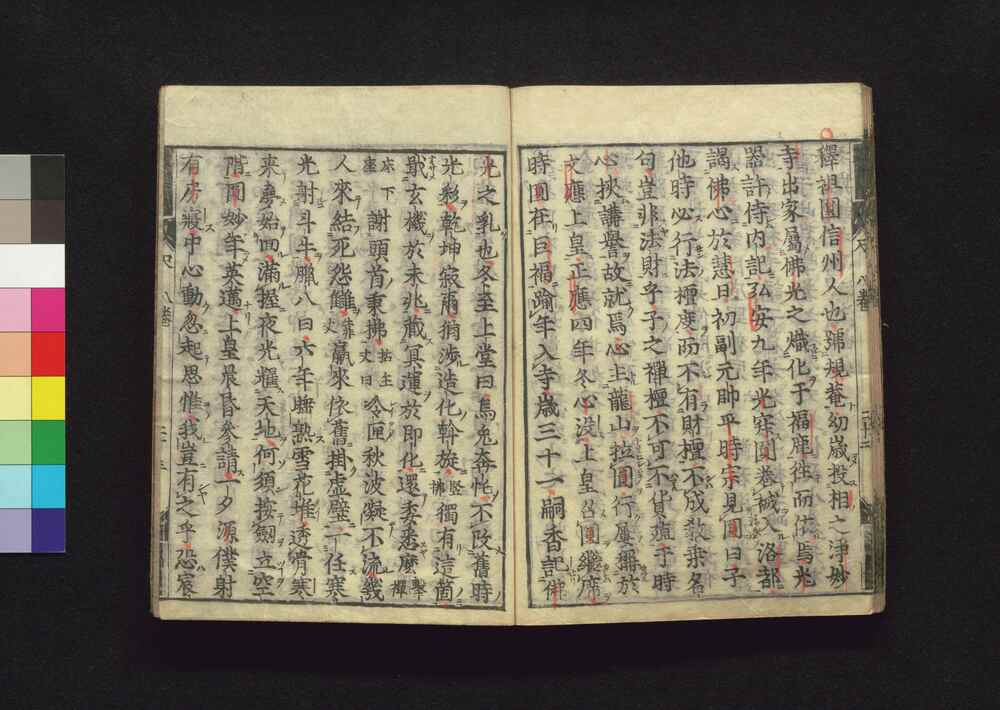 釋祖圓信州人也號規菴幼歲投相之淨妙
寺出家屬佛光之熾化于福鹿往而依焉光
器許侍內記弘安九年光寂圓卷裓入洛都
謁佛心於慧日初副元帥平時宗見圓曰子
他時必行法檀度而不有財檀不成敎乘名
句豈非法財乎子之禪檀不可不貨殖于時
心挾講譽故就焉心主龍山拉圓行屢稱於
文應上皇正應四年冬心沒上皇召圓繼席
時圓在曰福踰年入寺歲三十一嗣香記佛
光之乳也冬至上堂曰烏兔奔忙不改舊時
光彩乾坤寂爾猶涉造化斡旋竪拂獨有這箇
戢玄機於未兆藏冥運於即化還委悉麼擊禪
床下座謝頭首秉拂拈主丈曰吟匣秋波凝不流幾
人來結死怨讎靠丈贏來依舊掛虛壁一任寒
光射斗牛臘八曰六年瞌熟雪花堆透骨寒
來夢始回滿握夜光耀天地何須按劒立空
階圓妙年英邁上皇晨昏參請一夕源僕射
有房寢中心動忽起思惟我豈有之乎恐宸